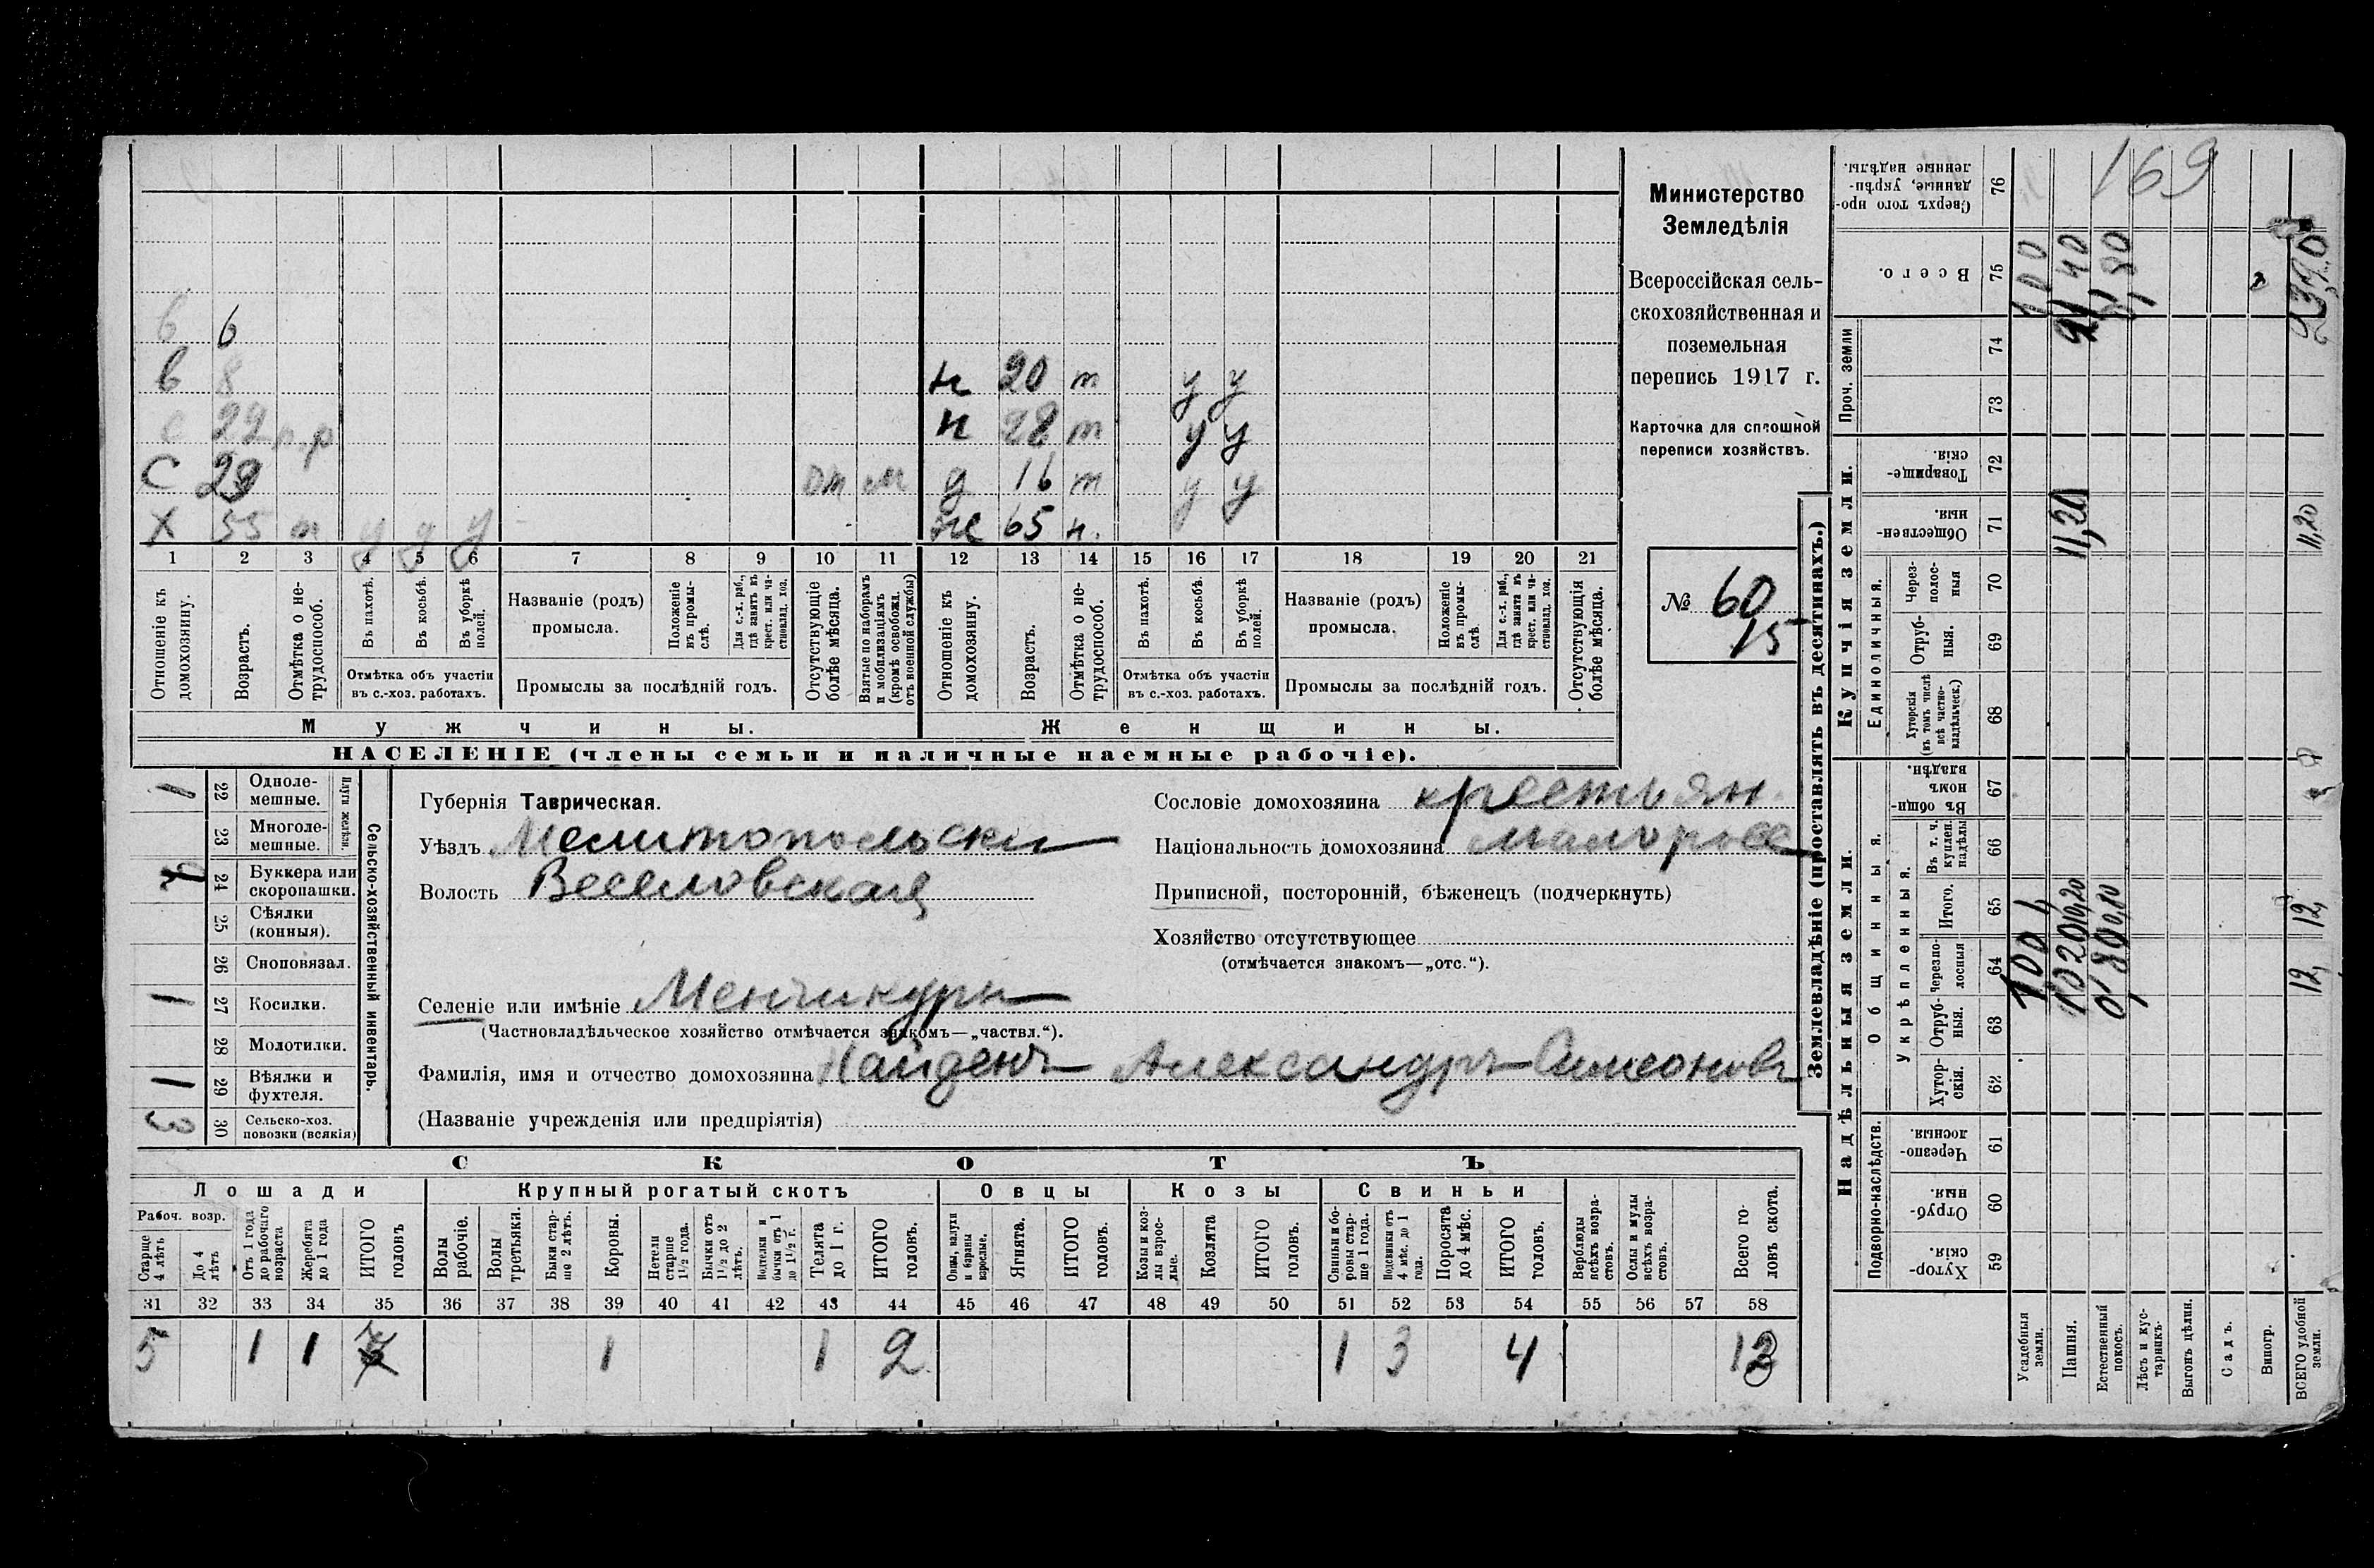 169
Министерство
Земледѣлія
Всероссійская сель-
скохозяйственная и
поземельная
перепись 1917 г.
Карточка для сплошной
переписи хозяйствъ.
№ 60
15
в 6
в 8
н 20 т у у
с 22 п.р
н 28 т у у
С 29 от м
д 16 т у у
Х 55 п у у у
же 65 н.
1 2 3 4 5 6 7 8 9 10 11 12 13 14 15 16 17 18 19 20 21
Отношеніе къ домохозяину.
Возрастъ.
Отмѣтка о не-трудоспособ.
Въ пахотѣ.
Въ косьбѣ.
Въ уборкѣ полей.
Отмѣтка объ участіи
въ с.-хоз. работахъ.
Названіе (родъ)
промысла.
Положеніе въ промы-слѣ.
Для с.-х. раб., гдѣ занятъ въ крест. или ча-стновлад. хоз.
Промыслы за послѣдній годъ.
Отсутствующіе болѣе мѣсяца.
Взятые по наборамъ и мобилизаціямъ (кромѣ освобожд. отъ военной службы)
Отношеніе къ домохозяину.
Возрастъ.
Отмѣтка о не-трудоспособ.
Въ пахотѣ.
Въ косьбѣ.
Въ уборкѣ полей.
Отмѣтка объ участіи
въ с.-хоз. работахъ.
Названіе (родъ)
промысла.
Положеніе въ промы-слѣ.
Для с.-х. раб., гдѣ занята въ крест. или ча-стновлад. хоз.
Промыслы за послѣдній годъ.
Отсутствующія болѣе мѣсяца.
Мужчины.
Женщины.
НАСЕЛЕНІЕ (члены семьи и наличные наемные рабочіе).
Сельско-хозяйственный инвентарь.
Плуги желѣзн.
1 22 Одноле-мешные.
23 Многоле-мешные.
24 Буккера или скоропашки.
25 Сѣялки (конныя).
26 Сноповязал.
1 27 Косилки.
28 Молотилки.
1 29 Вѣялки и фухтеля.
3 30 Сельско-хоз. повозки (всякія)
Губернія Таврическая.
Уѣздъ Мелитопольски
Волость Веселовская
Сословіе домохозяина крестьян.
Національность домохозяина малоросс
Приписной, посторонній, бѣженецъ (подчеркнуть)
Хозяйство отсутствующее
(отмѣчается знакомъ—„отс.“).
Селеніе или имѣніе Менчикуры
(Частновладѣльческое хозяйство отмѣчается знакомъ—„частвл.“).
Фамилія, имя и отчество домохозяина Найденъ Александръ Симеоновъ
(Названіе учрежденія или предпріятія)
СКОТЪ
Лошади
Крупный рогатый скотъ
Овцы
Козы
Свиньи
Рабоч. возр.
Старше 4 лѣтъ
До 4 лѣтъ
Отъ 1 года до рабочаго возраста
Жеребята до 1 года
ИТОГО головъ
Волы рабочіе.
Волы третьяки.
Быки стар-ше 2 лѣтъ.
Коровы.
Нетели старше 1 1/2 года.
Бычки отъ 1 1/2 до 2 лѣтъ.
Подтелки и бычки отъ 1 до 1 1/2 г.
Телята до 1 г.
ИТОГО головъ.
Овцы, валухи и бараны взрослые.
Ягнята.
ИТОГО головъ.
Козы и коз-лы взрос-лые.
Козлята
ИТОГО головъ.
Свиньи и бо-ровы стар-ше 1 года.
Подсвинки отъ 4 мѣс. до 1 года.
Поросята до 4 мѣс.
ИТОГО головъ.
Верблюды всѣхъ возра-стовъ.
Ослы и мулы всѣхъ возра-стовъ.
Всего го-ловъ скота.
31 32 33 34 35 36 37 38 39 40 41 42 43 44 45 46 47 48 49 50 51 52 53 54 55 56 57 58
5 1 1 1 1 2 1 3 4 13
Землевладѣніе (проставлять въ десятинахъ.)
Надѣльныя земли.
Купчія земли.
Проч. земли
Подворно-наслѣдств.
Общинныя.
Укрѣпленныя.
Единоличныя.
Хутор-скія. 59
Отруб-ныя. 60
Черезпо-лосныя. 61
Хутор-скія. 62
Отруб-ныя. 63
Черезпо-лосныя 64
Итого. 65
Въ т. ч. куплен. надѣлы 66
Въ общи-номъ владѣн. 67
Хуторскія (въ томъ числѣ всѣ частно-владѣльческ.) 68
Отруб-ныя. 69
Через-полос-ныя 70
Обществен-ныя. 71
Товарище-скія. 72
73
74
Всего. 75
Сверхъ того про-данные, укрѣп-ленные надѣлы. 76
Усадебныя земли. 100
Пашня. 11,20
Естественный покосъ.
Лѣсъ и кус-тарникъ.
Выгонъ цѣлин.
Садъ.
Виногр.
ВСЕГО удобной земли. 12, 12, 11,20